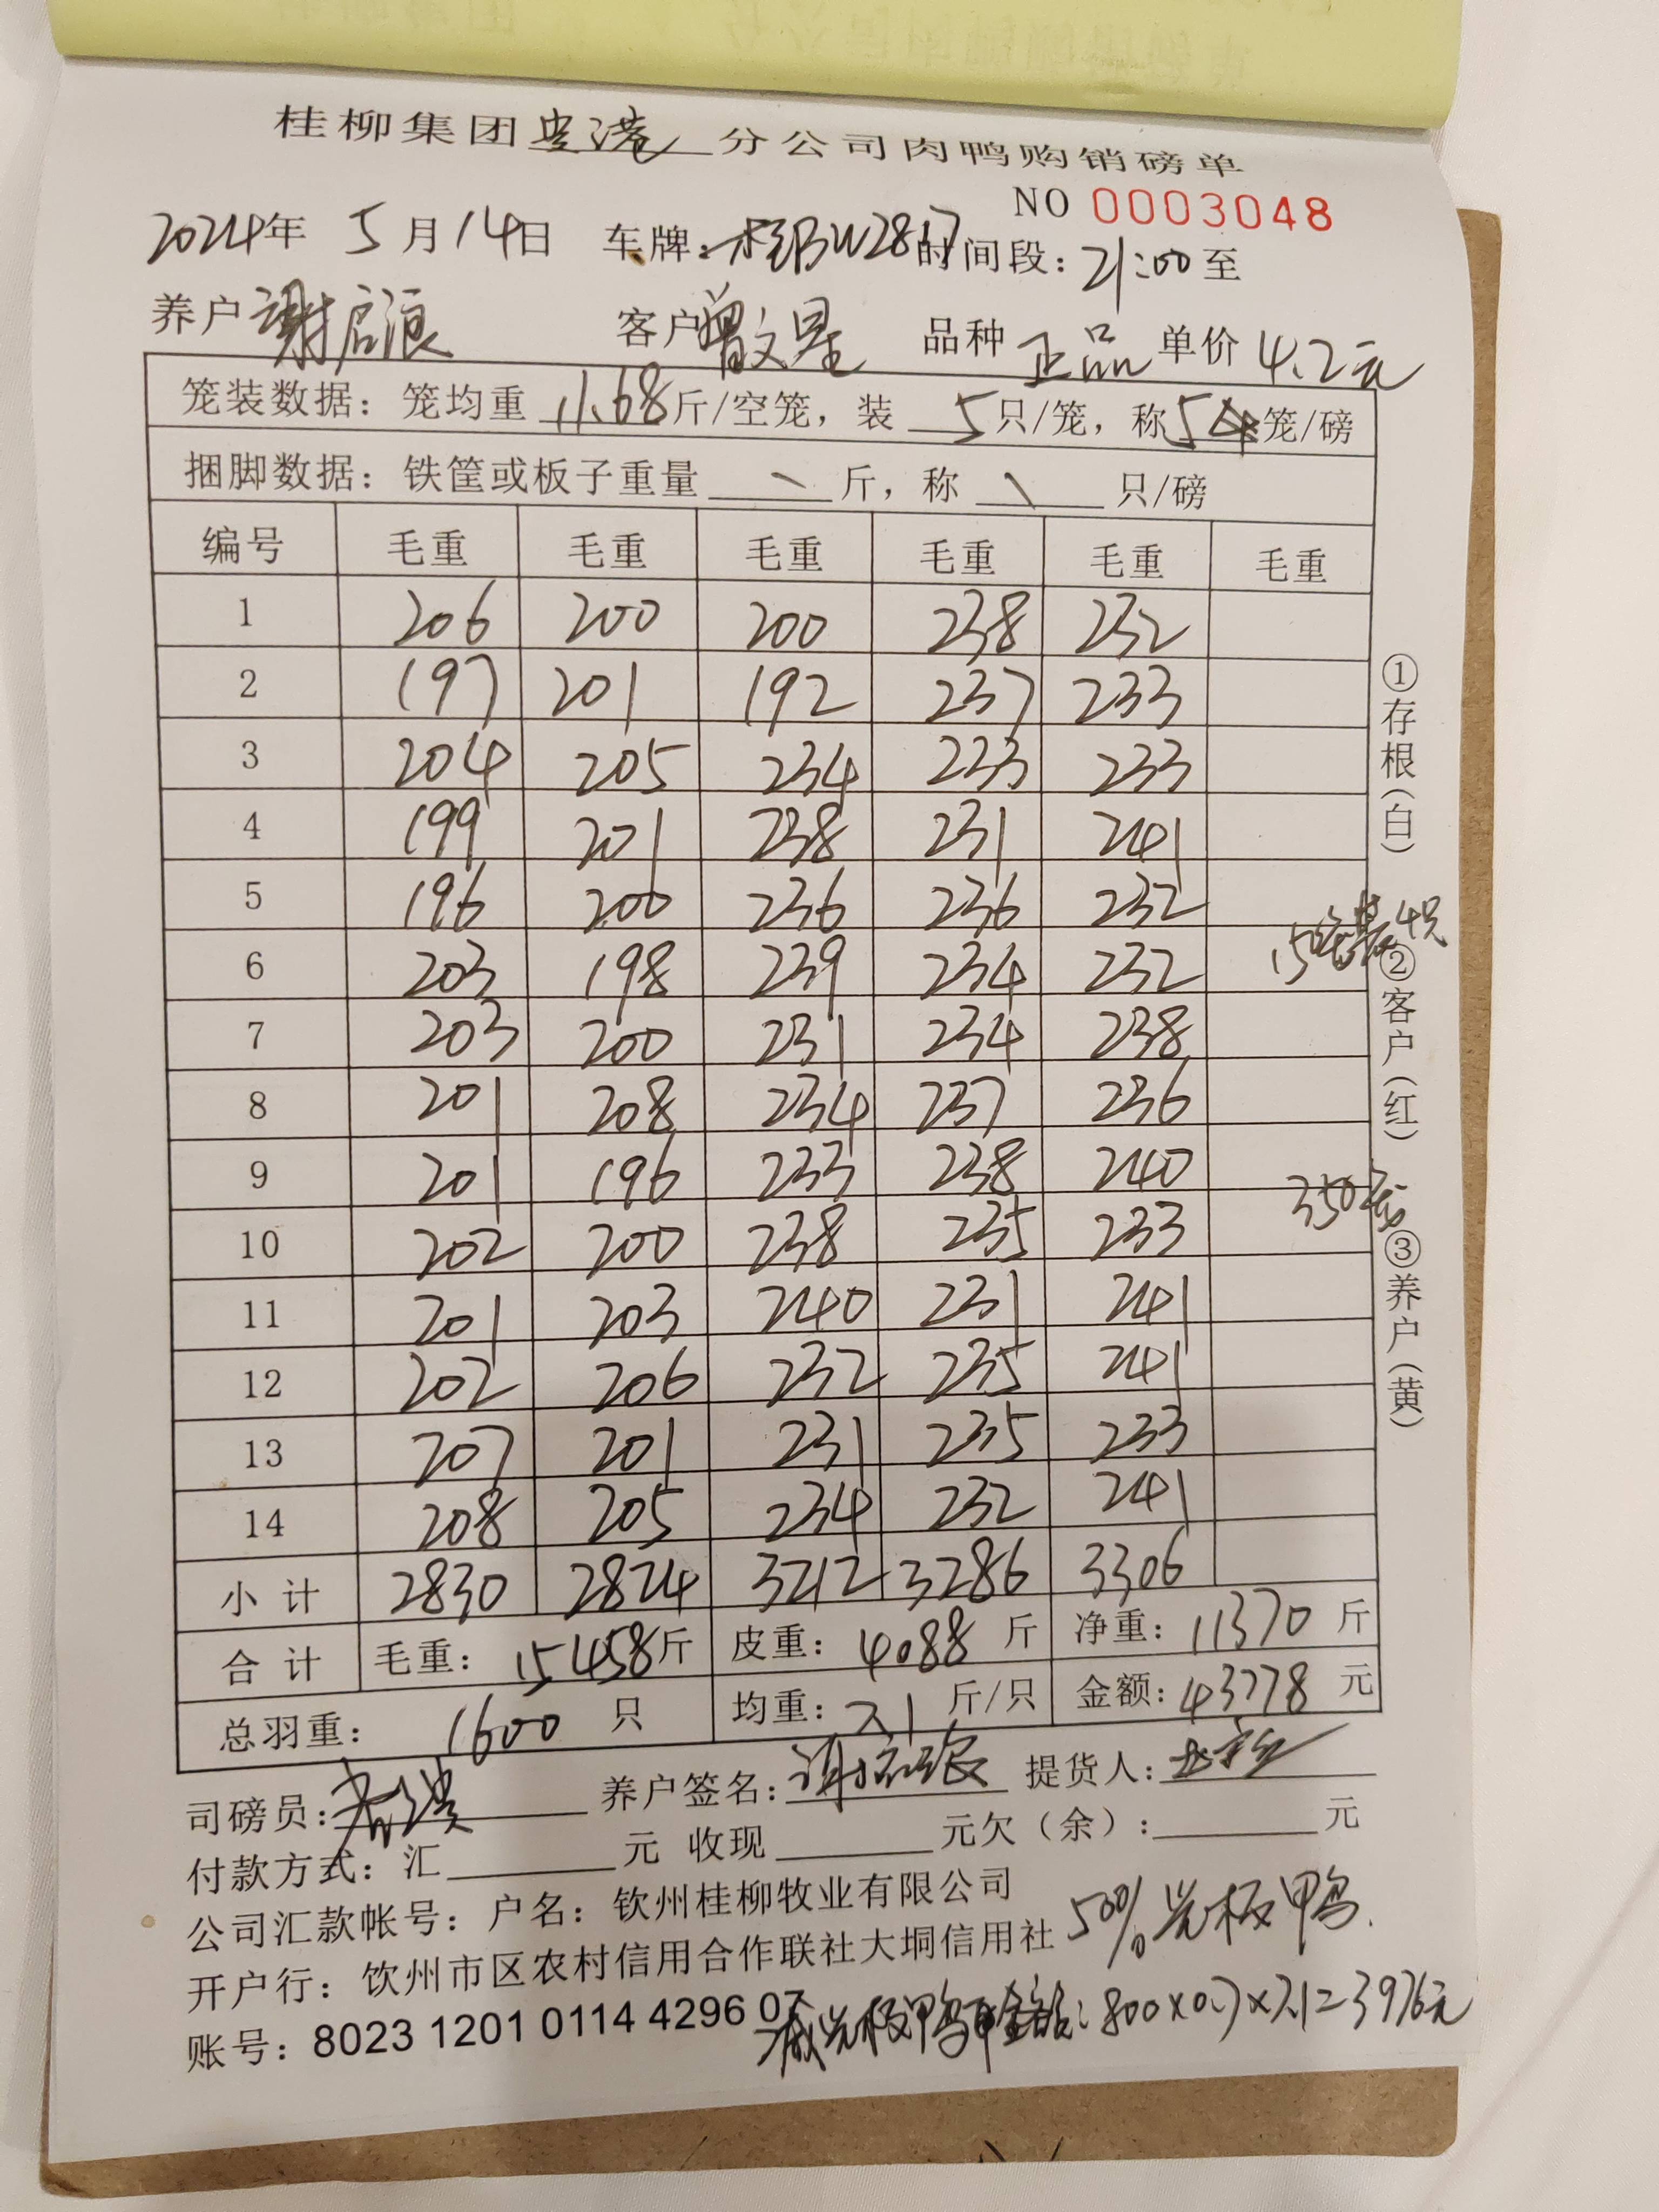 桂柳集团贵港分公司肉鸭购销磅单
NO 0003048
2024年 5月14日 车牌:桂BW2817 时间段:21:00至
养户 谢启浪 客户 曾文星 品种 正品 单价 4.2元
笼装数据: 笼均重 11.68斤/空笼, 装 5只/笼, 称5笼/磅
捆脚数据: 铁筐或板子重量 \ 斤, 称 \ 只/磅
编号 毛重 毛重 毛重 毛重 毛重 毛重
1 206 200 200 238 232
2 197 201 192 237 233
3 204 205 234 233 233
4 199 201 238 231 241
5 196 200 236 236 232
6 203 198 239 234 232
7 203 200 231 234 238
8 201 208 234 237 236
9 201 196 233 238 240
10 202 200 238 235 233
11 201 203 240 231 241
12 202 206 232 235 241
13 207 201 231 235 233
14 208 205 234 232 241
小计 2830 2824 3212 3286 3306
合计 毛重: 15458斤 皮重: 4088 斤 净重: 11370 斤
总羽重: 1600 只 均重: 7.1 斤/只 金额: 43778 元
①存根(白)
150笼装4只
②客户(红)
350笼
③养户(黄)
司磅员: 养户签名: 谢启浪 提货人:
付款方式: 汇 元 收现 元欠(余): 元
公司汇款帐号: 户名: 钦州桂柳牧业有限公司
50% 光板鸭
开户行: 钦州市区农村信用合作联社大垌信用社
账号: 8023 1201 0114 4296 07
减光板鸭金额: 800×0.7×7.1=3976元